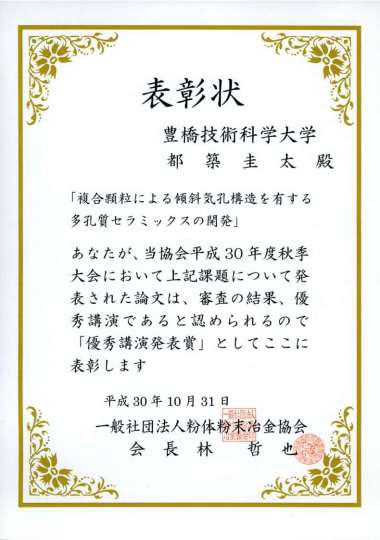 表彰状
豊橋技術科学大学
都築圭太殿
「複合顆粒による傾斜気孔構造を有する
多孔質セラミックスの開発」
あなたが、当協会平成30年度秋季
大会において上記課題について発
表された論文は、審査の結果、優
秀講演であると認められるので
「優秀講演発表賞」としてここに
表彰します
平成30年10月31日
一般社団法人粉体粉末冶金協会
会長林哲也